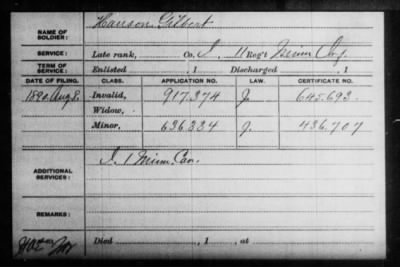 NAME OF SOLDIER: Hanson Gilbert
SERVICE: Late rank, Co. I, 11 Reg't Minn. Inf.
TERM OF SERVICE: Enlisted , 1 Discharged , 1
DATE OF FILING. CLASS. APPLICATION NO. LAW. CERTIFICATE NO.
1890. Aug 8. Invalid, 917.374 J. 645.693
Widow,
Minor, 636.334 J. 436.707
ADDITIONAL SERVICES: I. 1 Minn. Cav.
REMARKS:
Died , 1 , at